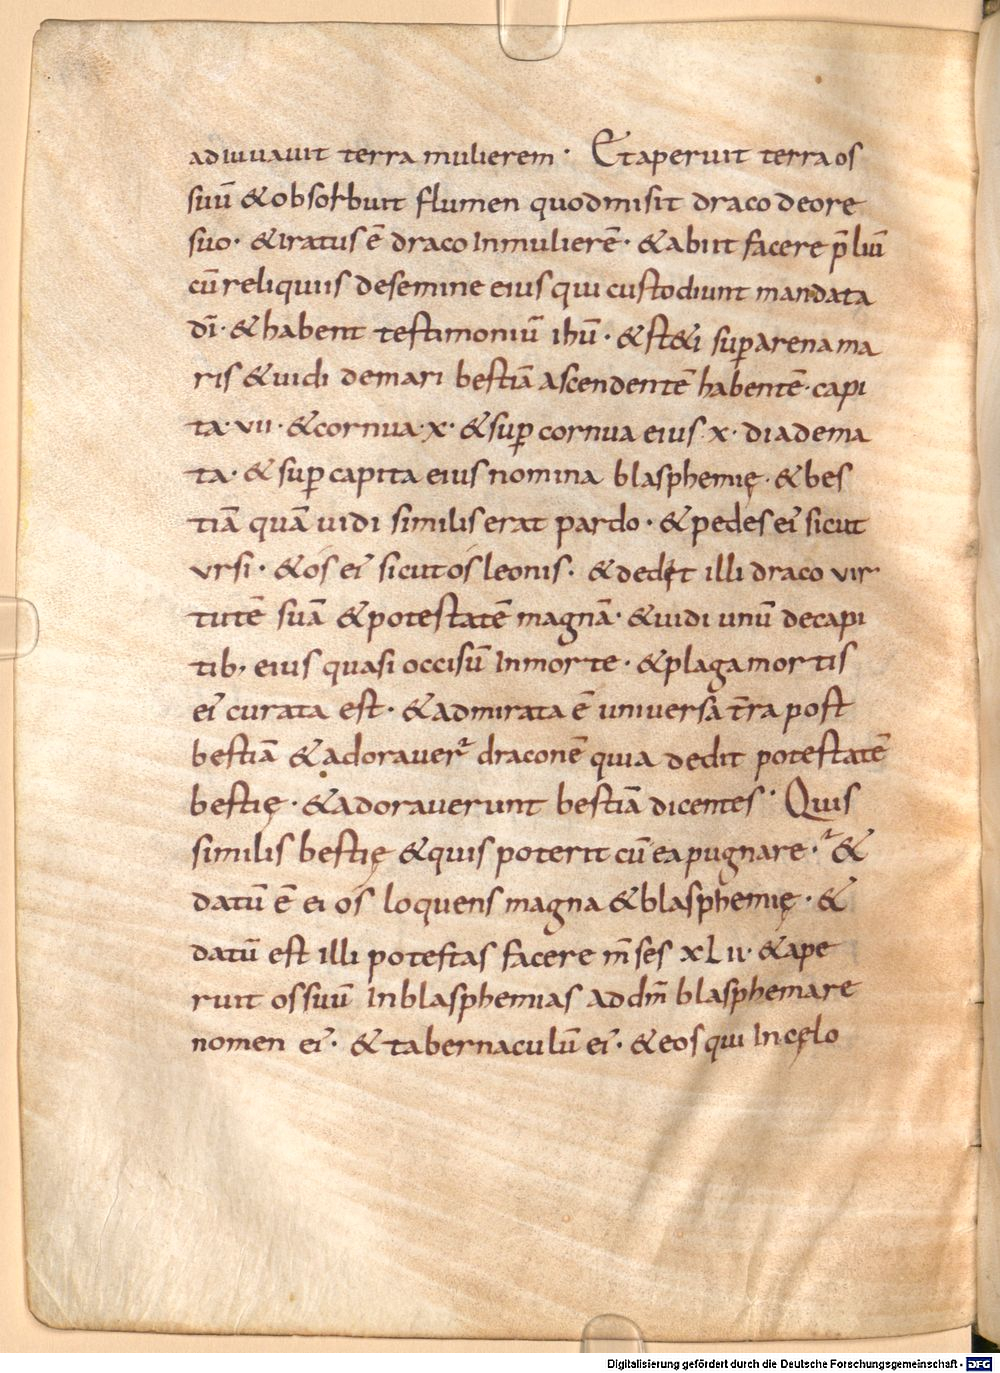 adiuuauit terra mulierem · Et aperuit terra os
suū & obsorbuit flumen quod misit draco de ore
suo · & iratus ē draco In mulierē · & abiit facere p̄liū
cū reliquiis de semine eius qui custodiunt mandata
dī · & habent testimoniū ihū · & st&i sup arena ma
ris & uidi de mari bestiā ascendentē habentē · capi
ta · vii · & cornua · x · & sup cornua eius · x · diadema
ta · & sup capita eius nomina blasphemię · & bes
tiā quā uidi similis erat pardo · & pedes ei᾿ sicut
ursi · & os ei᾿ sicut os leonis · & dedit illi draco uir
tutē suā & potestatē magnā · & uidi unū de capi
tib; eius quasi occisū In morte · & plaga mortis
ei᾿ curata est · & admirata ē uniuersa t̄ra post
bestiā & adorauer̄ draconē quia dedit potestatē
bestię · & adorauerunt bestiā dicentes · Quis
similis bestię & quis poterit cū ea pugnare · &
datū ē ei os loquens magna & blasphemię · &
datū est illi potestas facere m̄ses xl ii · & ape
ruit os suū In blasphemias ad dm̄ blasphemare
nomen ei᾿ · & tabernaculū ei᾿ · & eos qui In cęlo
Digitalisierung gefördert durch die Deutsche Forschungsgemeinschaft - DFG